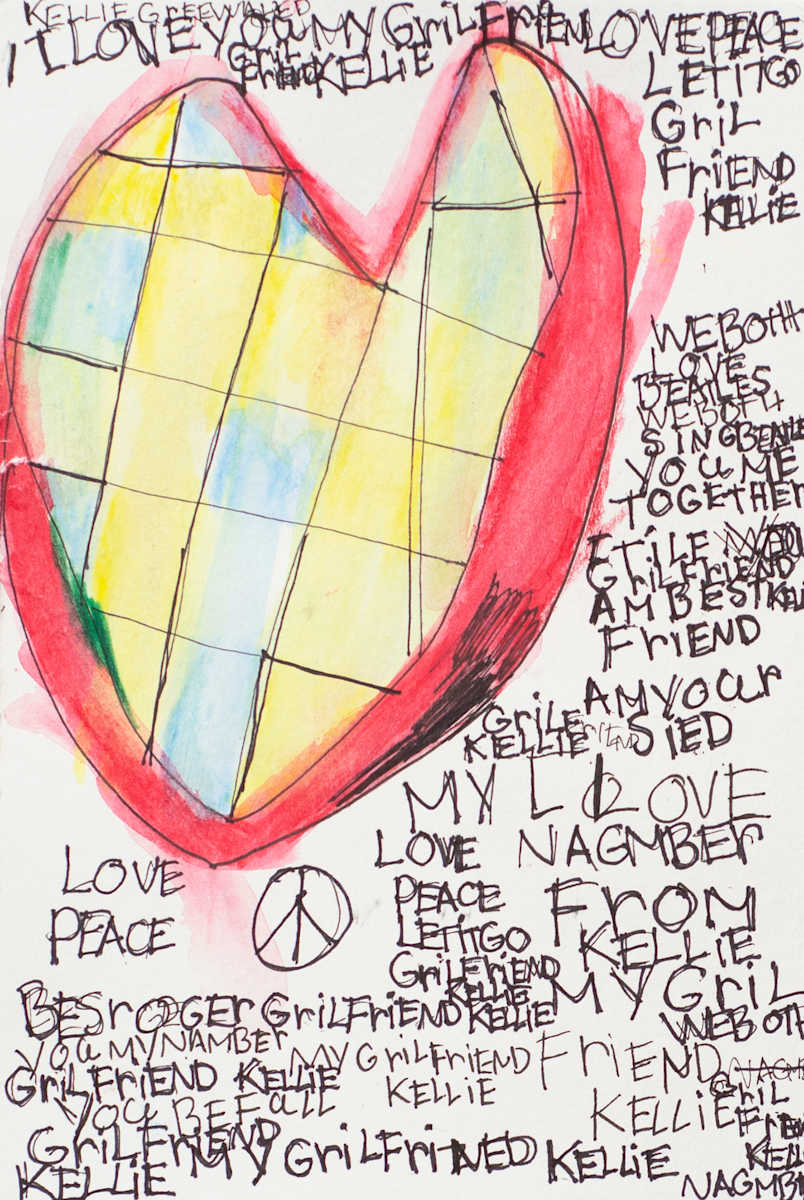 KELLIE GREEWALED
I LOVE YOU MY GRILFRIEND LOVE PEACE
GRIL
FRIEND KELLIE
LETITGO
GRIL
FRIEND
KELLIE
WE BOTH
LOVE
BEATLES
WE BOFH
SING BEATLE
YOU ME
TOGETHER
GRILFRIEND
AM BEST KELLI
FRIEND
AM YOUR
GRILF
KELLIE FRIEND SIED
MY LOVE
NAGMBER
LOVE
PEACE
LOVE
PEACE
LETITGO
GRILFRIEND
KELLIE
FROM
KELLIE
MY GRIL
WE BOTH
FRIEND
KELLIE
GRILFRIEND KELLIE
YOU MY NAMBER
GRILFRIEND KELLIE
MY GRILFRIEND
KELLIE
YOU BEFALL
GRILFRIEND
KELLIE
MY GRILFRITNED KELLIE
GRIL
FRIEN
KELLI
NAGMB